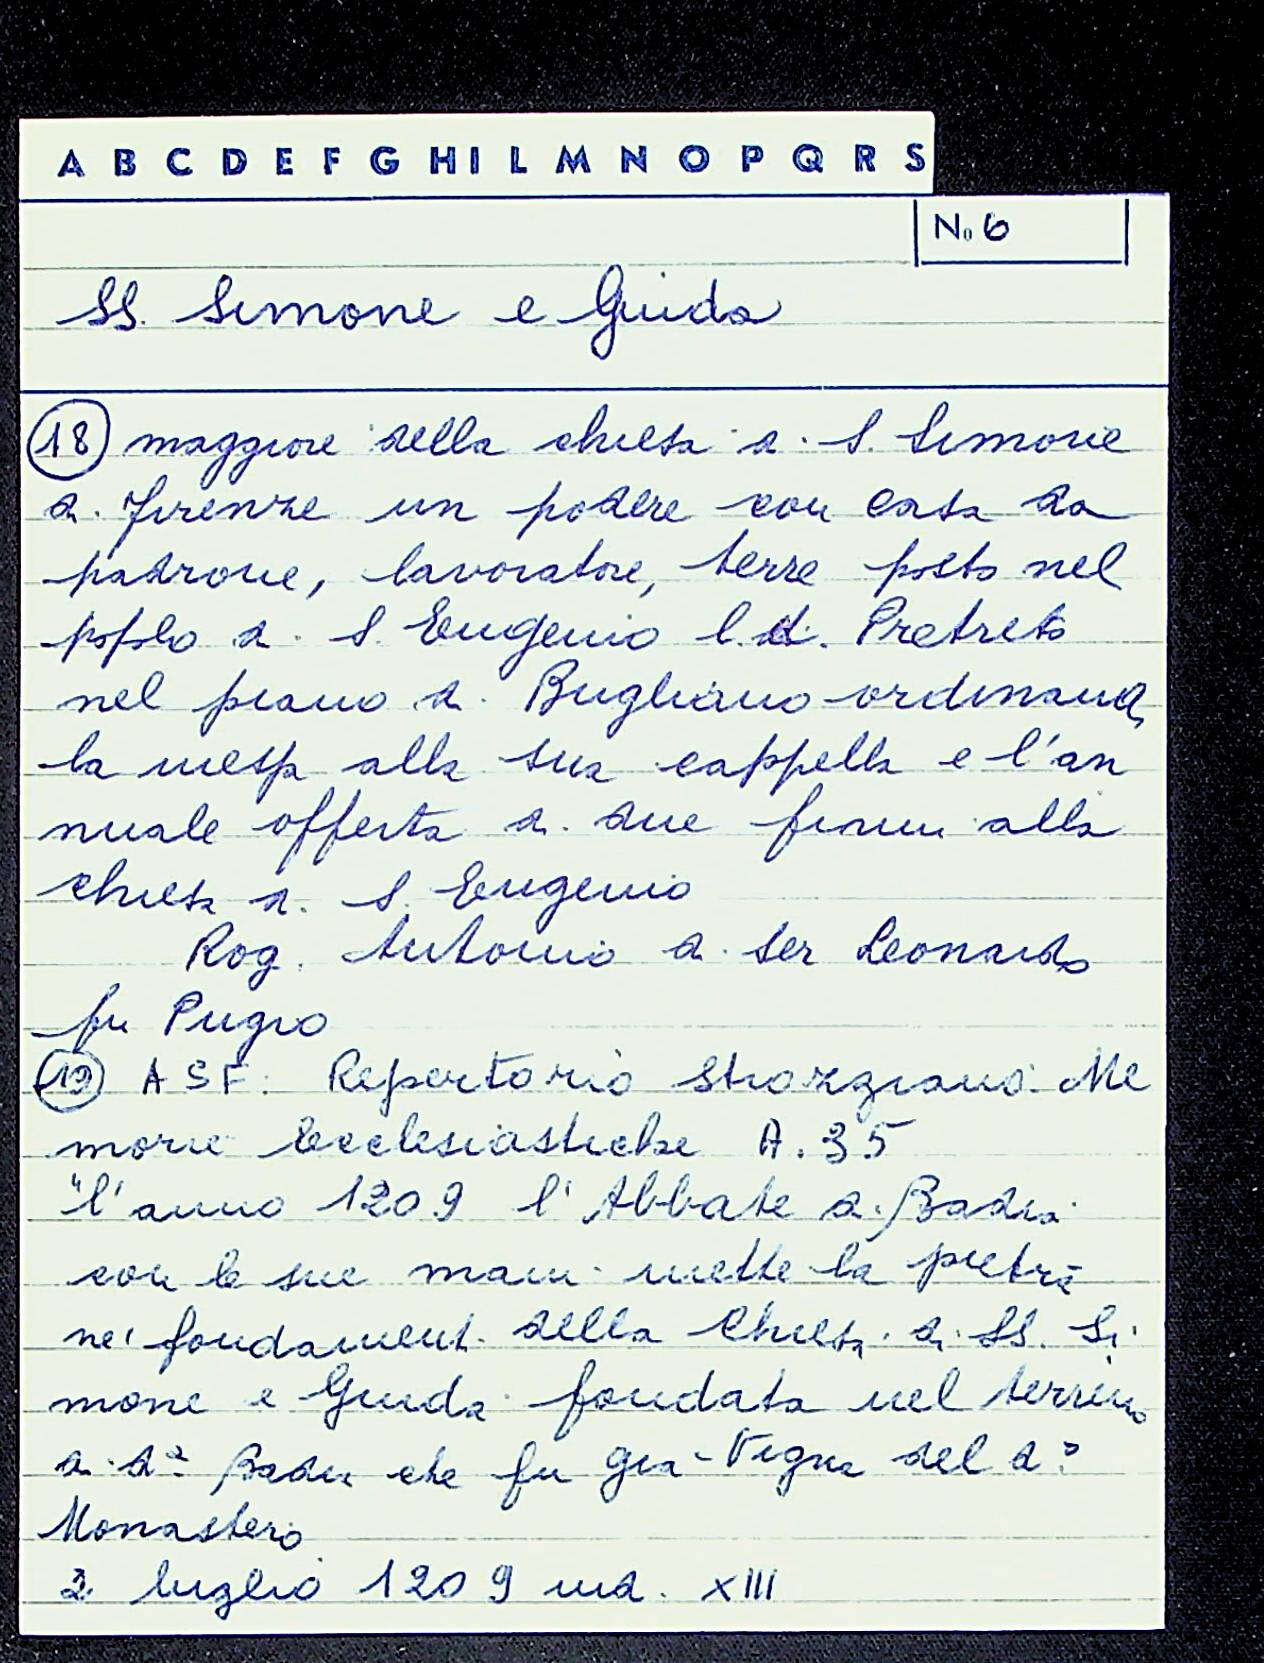 A B C D E F G H I L M N O P Q R S
No 6
SS. Simone e Giuda
18 maggiore della chiesa di S. Simone
di Firenze un podere con casa da
padrone, lavoratore, terre posto nel
popolo di S. Eugenio l.d. Pratreto
nel piano di Bugliano ordinando
la messa alla sua cappella e l'an
nuale offerta di due fiorini alla
chiesa di S. Eugenio
Rog. Antonio di ser Leonardo
fu Pugio
19 ASF. Repertorio Strozziano. Me
morie Ecclesiastiche A. 35
"l'anno 1209 l'Abbate di Badia
con le sue mani mette la pietra
nei fondamenti della Chiesa di SS. Si
mone e Giuda fondata nel terreno
di da Badia che fu gia Vigna del do
Monastero
2 luglio 1209 ind. XIII